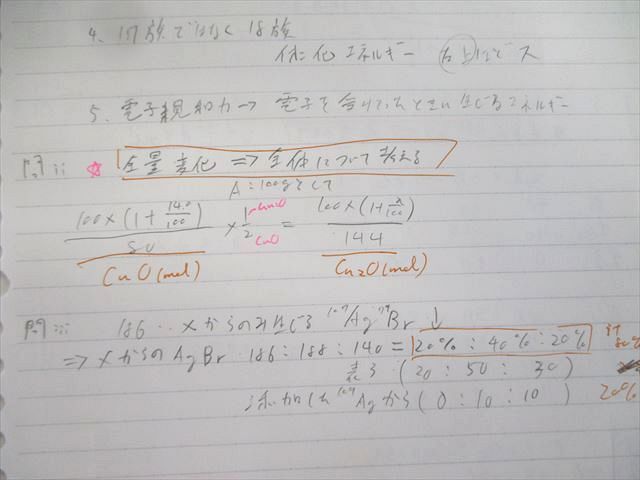 4. 17族ではなく 18族
イオン化エネルギー 右上ほど大
5. 電子親和力→ 電子を受けとったときに生じるエネルギー
問ii ☆ 全量変化 ⇒ 全体について考える
A = 100gとして
100×(1+14.0/100)/80 × 1/2 = 100×(1+x/100)/144
Cu2O CuO
CuO(mol) Cu2O(mol)
問iii 186 ‥ Xからのみ生じる 107Ag79Br ↓
⇒ XからのAgBr 186:188:190 = 20% : 40% : 20% 計80%
表3 (20 : 50 : 30)
添加した 109Agから (0 : 10 : 10) 20%